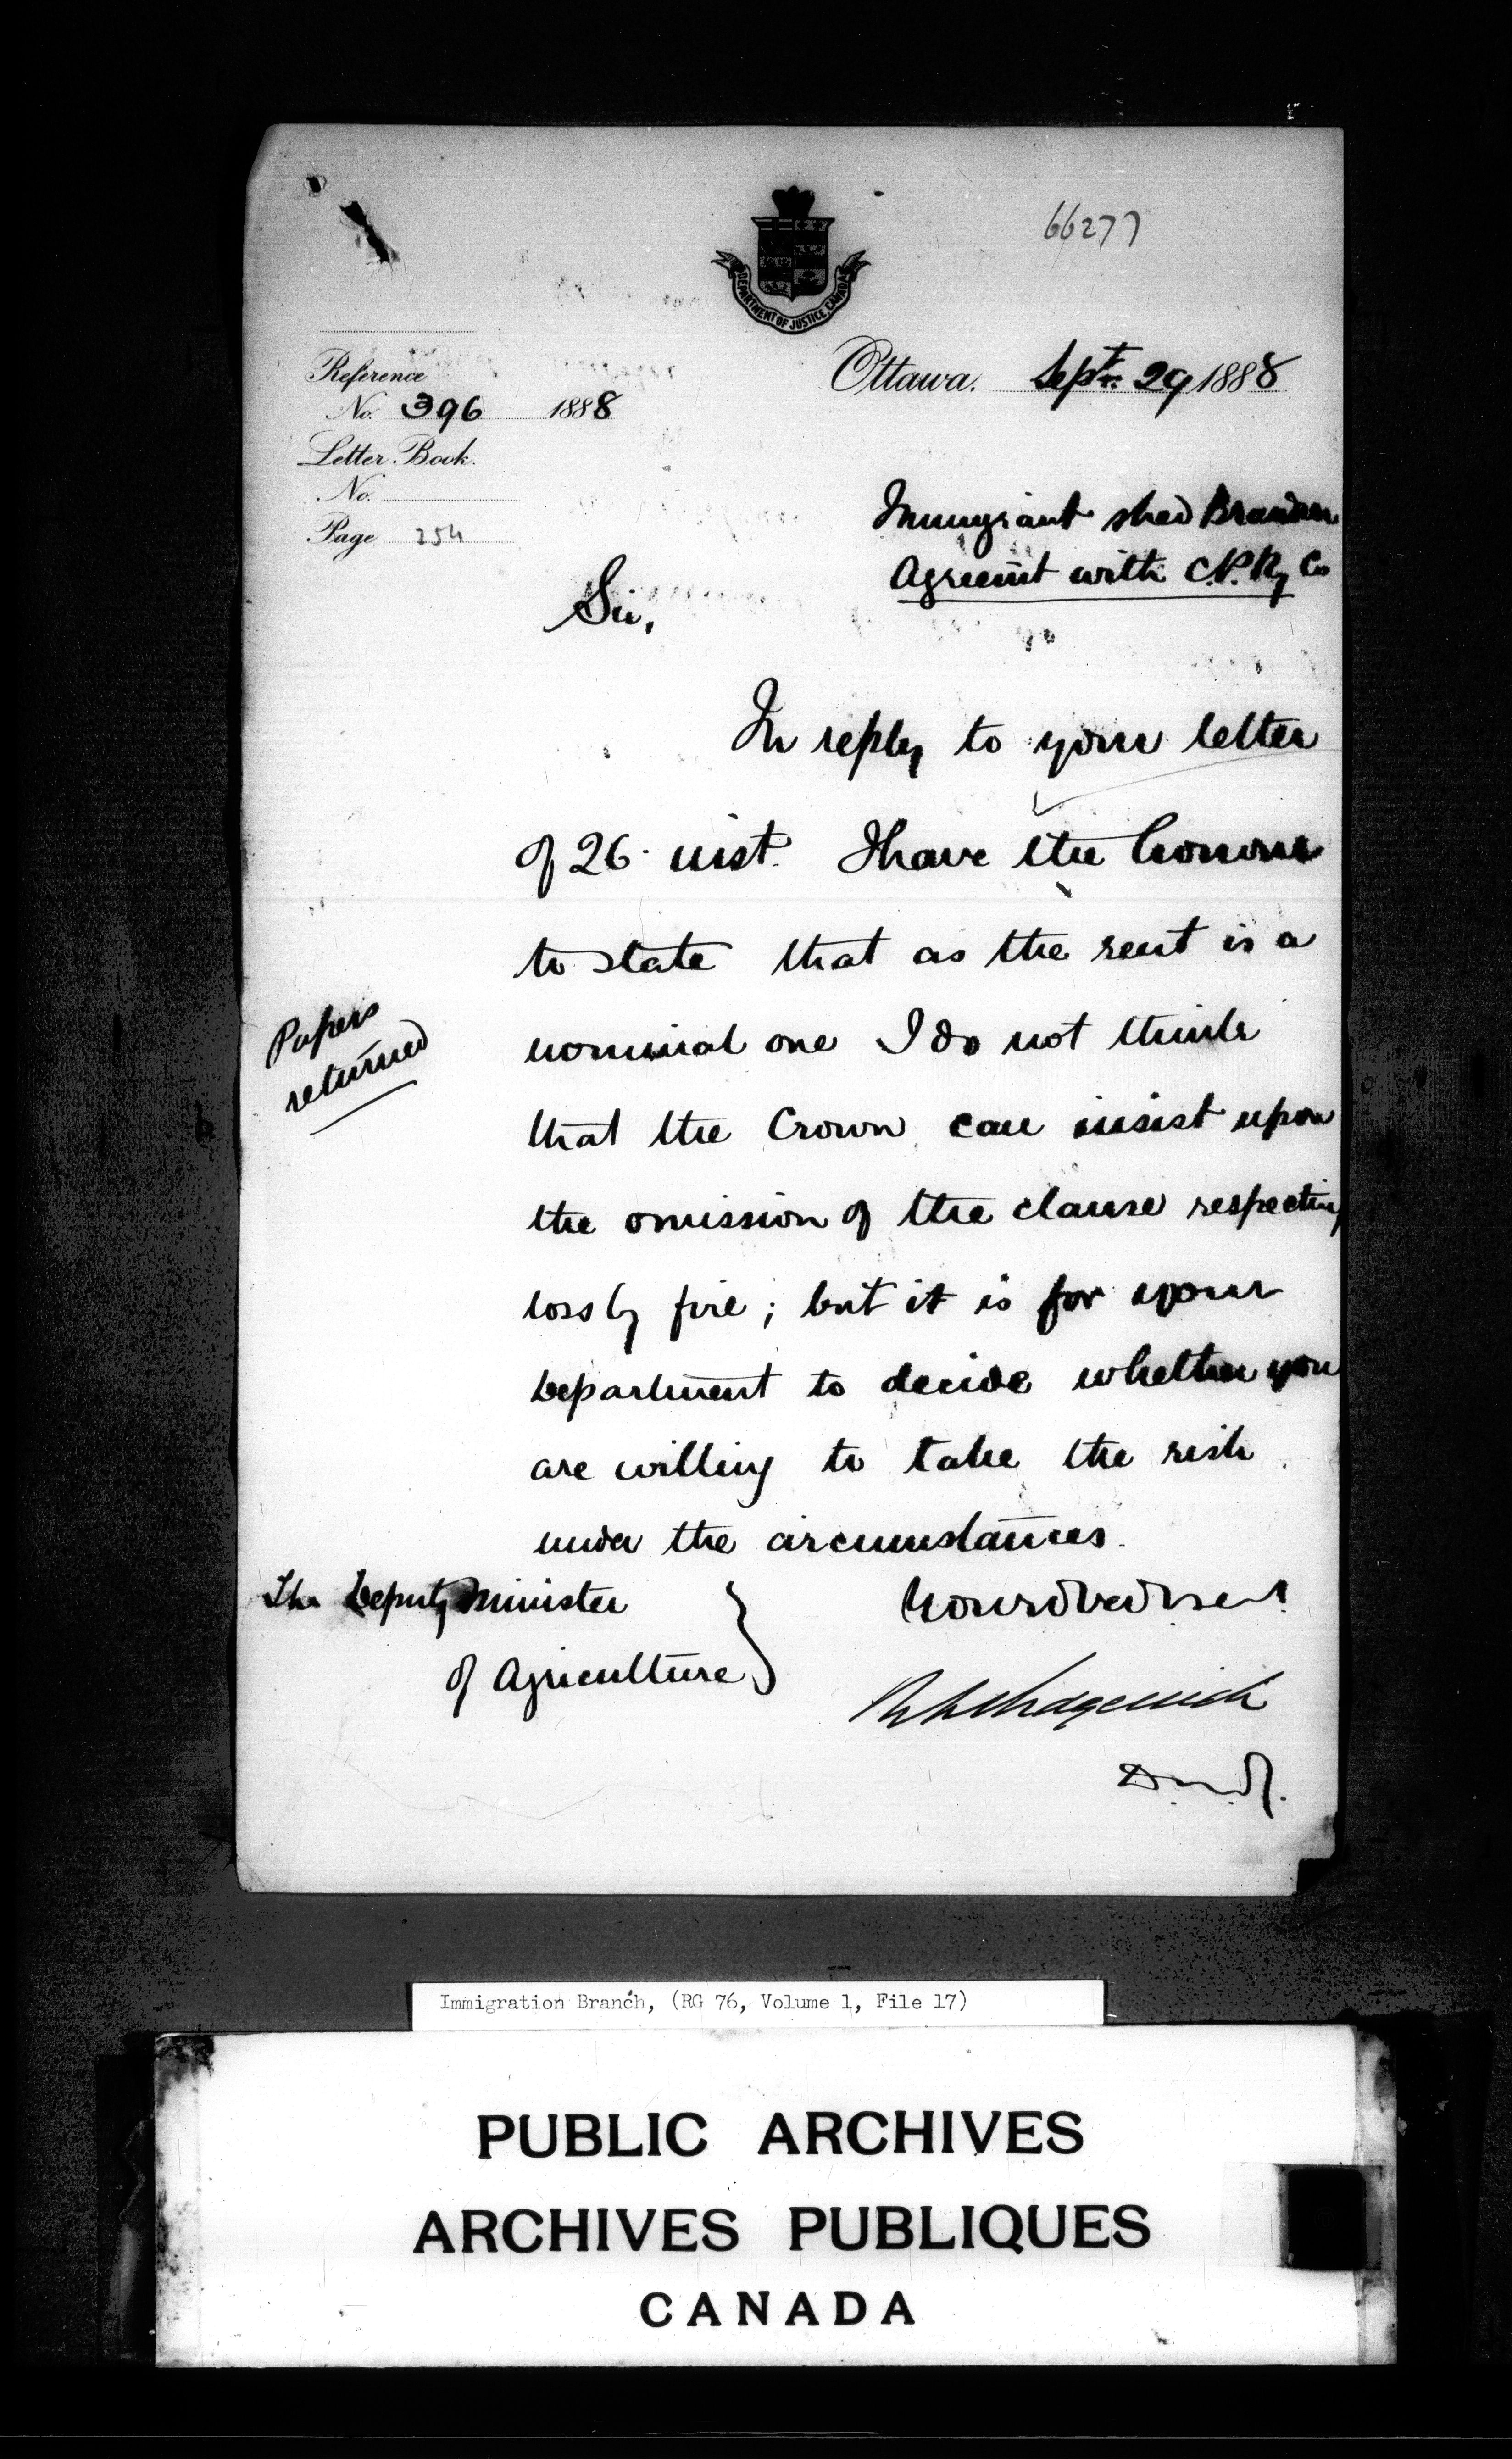 66277
DEPARTMENT OF JUSTICE, CANADA
Reference
No. 396 1888
Letter Book.
No.
Page 254
Ottawa. Septr. 29 1888
Immigrant shed Brandon
Agreemt with C.P.Ry Co
Sir,
In reply to your letter
of 26 inst. I have the honour
to state that as the rent is a
nominal one I do not think
that the Crown can insist upon
the omission of the clause respecting
loss by fire; but it is for your
Department to decide whether you
are willing to take the risk
under the circumstances.
Papers
returned
The Deputy Minister
of Agriculture
Your obed serv
Sedgewick
D.M.J.
Immigration Branch, (RG 76, Volume 1, File 17)
PUBLIC ARCHIVES
ARCHIVES PUBLIQUES
CANADA